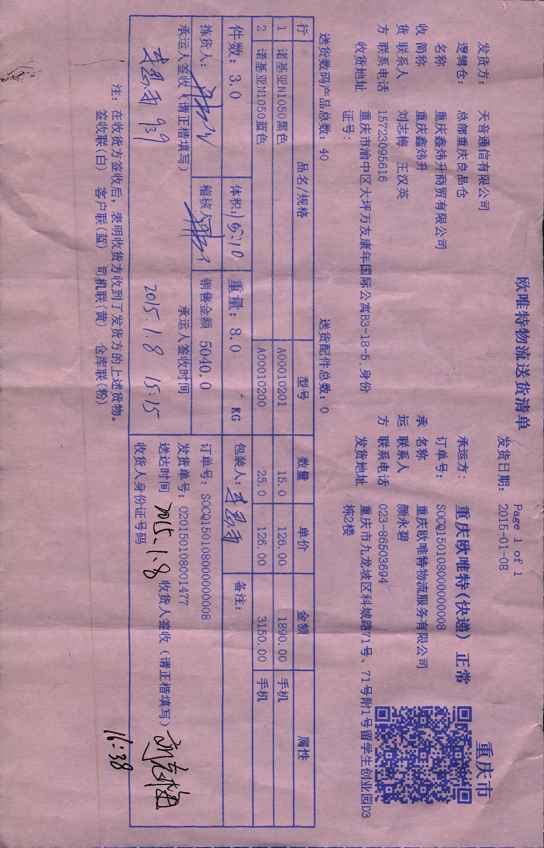 欧唯特物流送货清单
Page 1 of 1
发货日期: 2015-01-08
重庆市
发货方: 天音通信有限公司
承运方: 重庆欧唯特(快递) 正常
逻辑仓: 总部重庆良品仓
订单号: SOCQ150108000000008
收货方 名称 重庆鑫炜升商贸有限公司
简称 重庆鑫炜升
联系人 刘志梅 王汉英
联系电话 15723095616
收货地址 重庆市渝中区大坪万友康年国际公寓B3-18-5,身份证号:
承运方 名称 重庆欧唯特物流服务有限公司
联系人 颜永碧
联系电话 023-86503694
发货地址 重庆市九龙坡区科城路71号、71号附1号留学生创业园D3栋2楼
送货数码产品总数: 40 送货配件总数: 0
行 品名/规格 型号 数量 单价 金额 属性
1 诺基亚N1050黑色 A00010201 15.0 126.00 1890.00 手机
2 诺基亚N1050蓝色 A00010200 25.0 126.00 3150.00 手机
件数: 3.0 体积: 15:10 重量: 8.0 KG 包装人: 备注:
拣货人: 稽核人: 销售金额 5040.0 订单号: SOCQ150108000000008
发货单号: O20150108001477
承运人签收(请正楷填写) 承运人签收时间 送达时间 2015.1.8 收货人签收(请正楷填写) 刘志梅
939 2015.1.8 15:15 收货人身份证号码 16:38
注: 在收货方签收后,表明收货方收到了发货方的上述货物。
签收联(白) 客户联(蓝) 司机联(黄) 仓库联(粉)